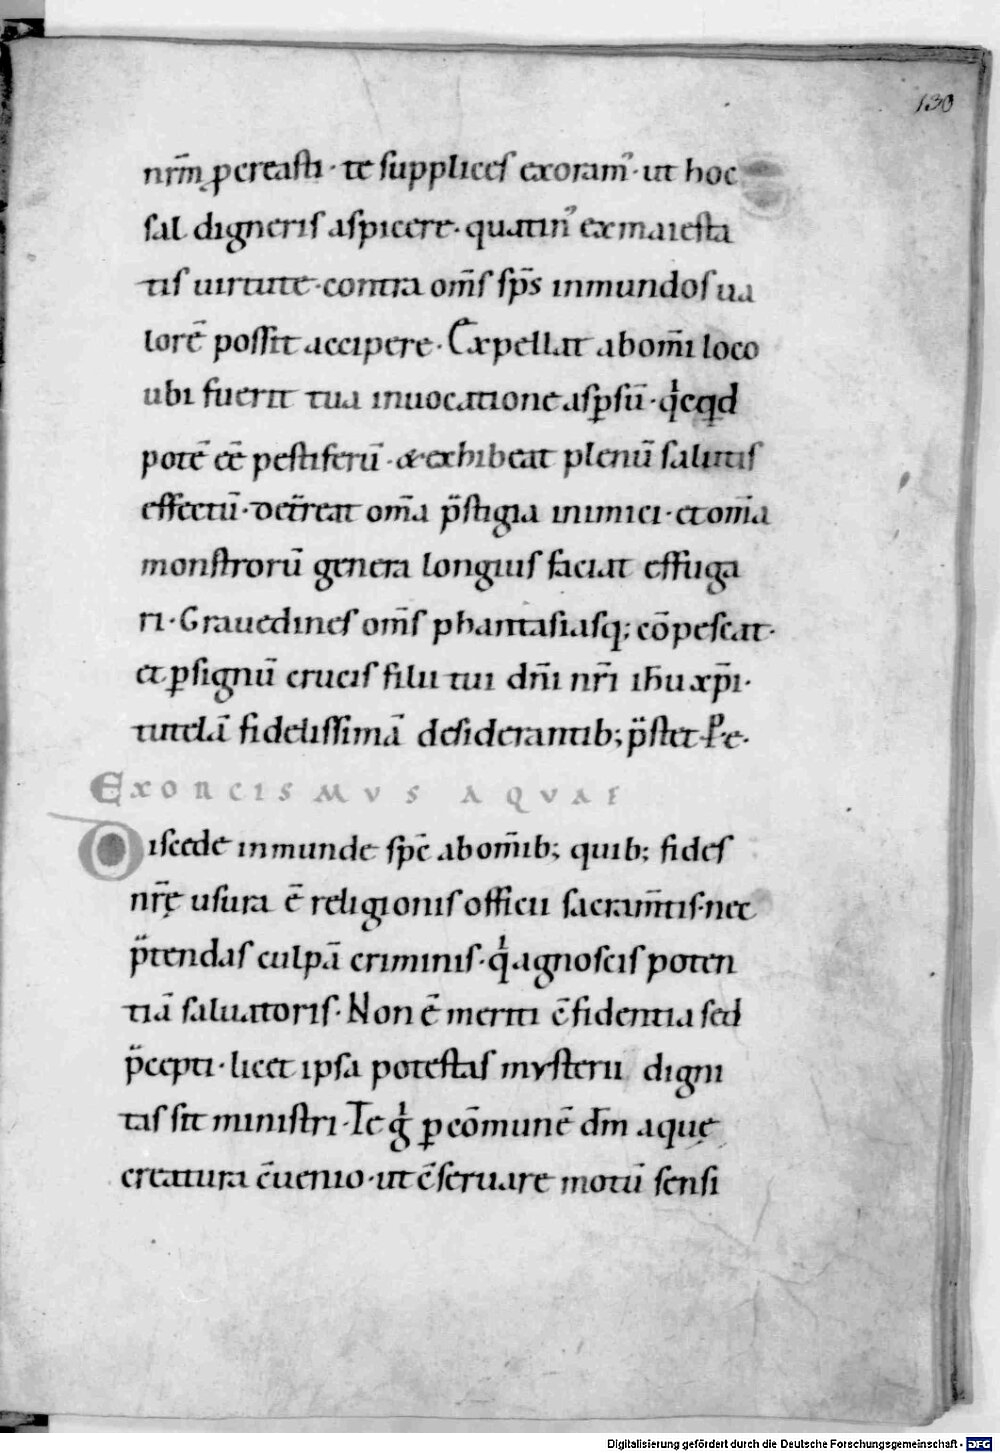 130
nr̅m ꝓcreasti · te supplices exoram᾽ · ut hoc
sal digneris aspicere · quatin᾽ ex maiesta
tis uirtute · contra om̅s sp̅s inmundos ua
lore̅ possit accipere · Expellat ab om̅i loco
ubi fuerit tua inuocatione aspersu̅ · qͥcqd
pote̅ e̅e̅ pestiferu̅ · & exhibeat plenu̅ salutis
effectu̅ · Det̅reat om̅a p̈stigia inimici · et om̅a
monstroru̅ genera longius faciat effuga
ri · Grauedines om̅s phantasiasq; co̅pescat ·
et ꝑ signu̅ crucis filii tui dn̅i nr̅i ih̅u xp̅i ·
tutela̅ fidelissima̅ desiderantib; p̈stet · P · e ·
EXORCISMVS AQVAE
Discede inmunde sp̅c ab om̅ib; quib; fides
nr̅ę usura e̅ religionis officii sacram̅tis · nec
p̈tendas culpa̅ criminis · qͥ agnoscis poten
tia̅ saluatoris · Non e̅ meriti c̅fidentia sed
p̈cepti · licet ipsa potestas mysterii digni
tas sit ministri · Te gͥ ꝑ co̅mune̅ dm̅ aquę
creatura c̅uenio · ut c̅seruare motu̅ sensi
Digitalisierung gefördert durch die Deutsche Forschungsgemeinschaft - DFG